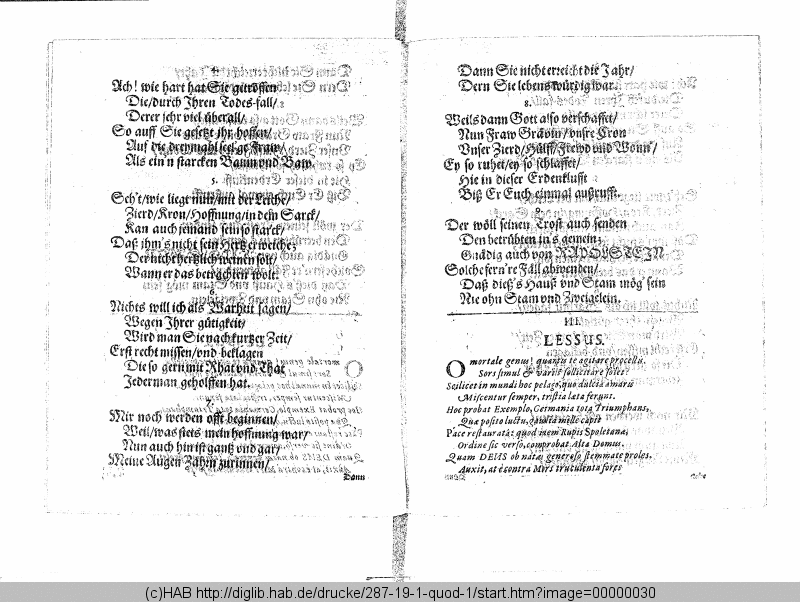 4.
Ach! wie hart hat Sie getroffen
Die/durch Ihren Todes-fall/
Derer sehr viel überall/
So auff Sie gesetzt ihr hoffen/
Auf die dreymahl seelge Fraw/
Als ein n starcken Bawm vnd Baw.
5.
Seh't/wie liegt nun/mit der Leiche/
Zierd/Kron/Hoffnung/in dem Sarck/
Kan auch jemand sein so starck/
Daß ihm's nicht sein Hertz erweiche;
Der nicht hertzlich weinen solt/
Wann er das betrachten wolt.
6.
Nichts will ich als Warheit sagen/
Wegen Ihrer gütigkeit/
Wird man Sie nach kurtzer Zeit/
Erst recht missen/vnd beklagen
Die so gern mit Rhat vnd That
Jederman geholffen hat.
7.
Mir noch werden offt beginnen/
Weil/was stets mein hoffnung war/
Nun auch hin ist gantz vnd gar/
Meine Augen Zähen zurinnen/
Dann
Dann Sie nicht erreicht die Jahr/
Dern Sie lebens würdig war.
8.
Weils dann Gott also verschaffet/
Nun Fraw Gräv̈in/vnsre Kron
Vnser Zierd/Hülff/Frewd vnd Wonn'/
Ey so ruhet/ey so schlaffet/
Hie in dieser Erdenklufft
Biß Er Euch einmal außrufft.
9.
Der wöll seinen Trost auch senden
Den betrübten in's gemein;
Gnädig auch von RADOLSTEIN
Solche fern're Fäll abwenden/
Daß dieß's Hauß vnd Stam mög' sein
Nie ohn Stam vnd Zweigelein.
III.
LESSUS.
O mortale genus! quantæ te agitare procellæ,
Sors simul & variis sollicitare solet?
Scilicet in mundi hoc pelago, quo dulcia amara
Miscentur semper, tristia læta ferunt.
Hoc probat Exemplo, Germania tota Triumphans,
Quæ posito luctu, gaudia mille capit
Pace restauratâ: quod inem Rupis Spoletana,
Ordine sic verso, comprobat Alta Domus.
Quam DEUS ob natæ generoso stemmate proles,
Auxit, at è contrà Mors truculenta ferox
(c)HAB http://diglib.hab.de/drucke/287-19-1-quod-1/start.htm?image=00000030